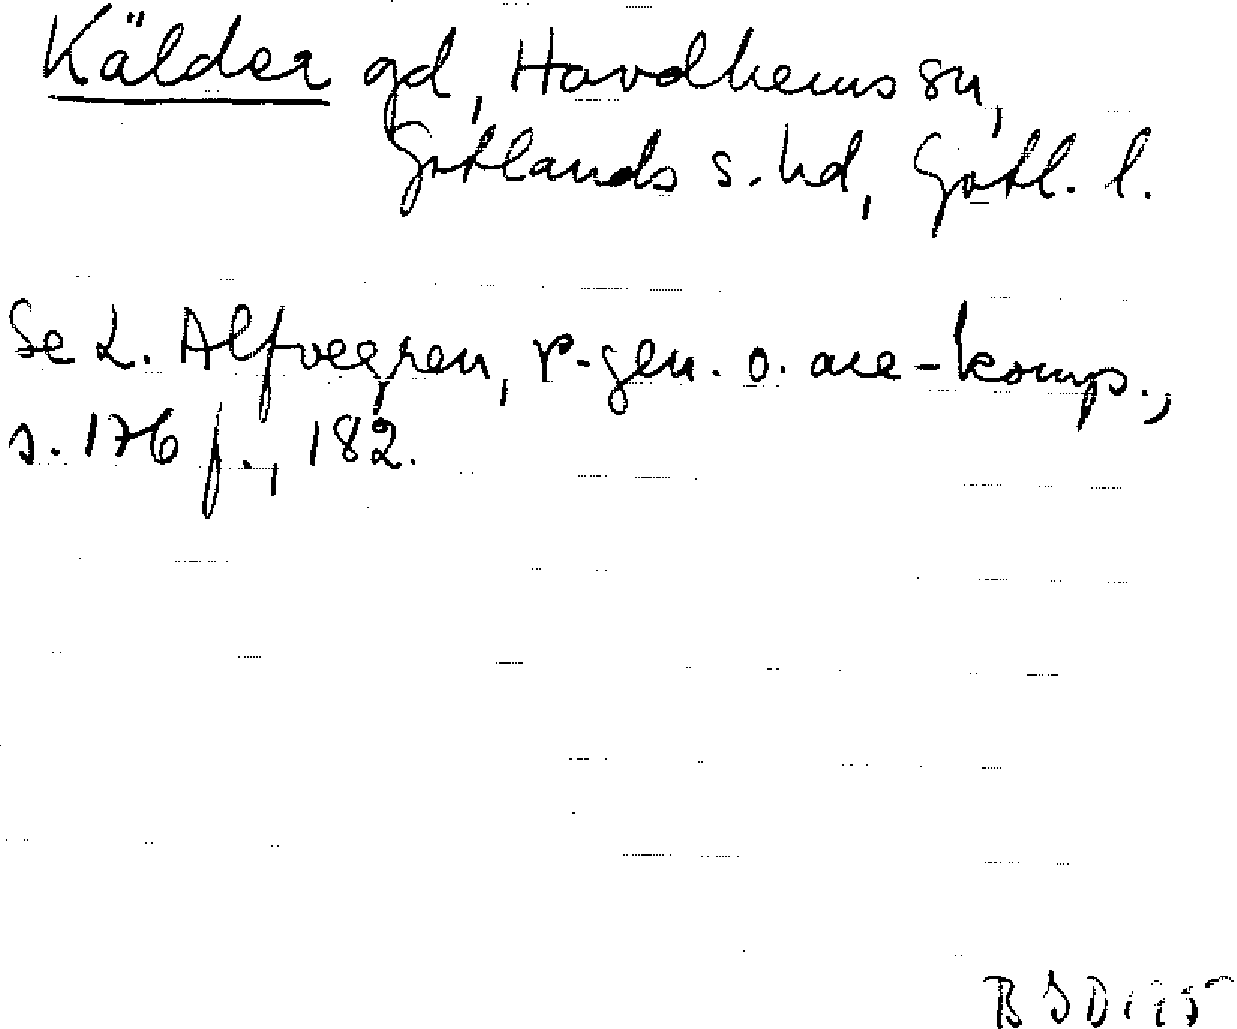 Kälder gd, Havdhems sn,
Gotlands s. hd, Gotl. l.
Se L. Alfvegren, r-gen. o. are-komp.,
s. 176 f., 182.